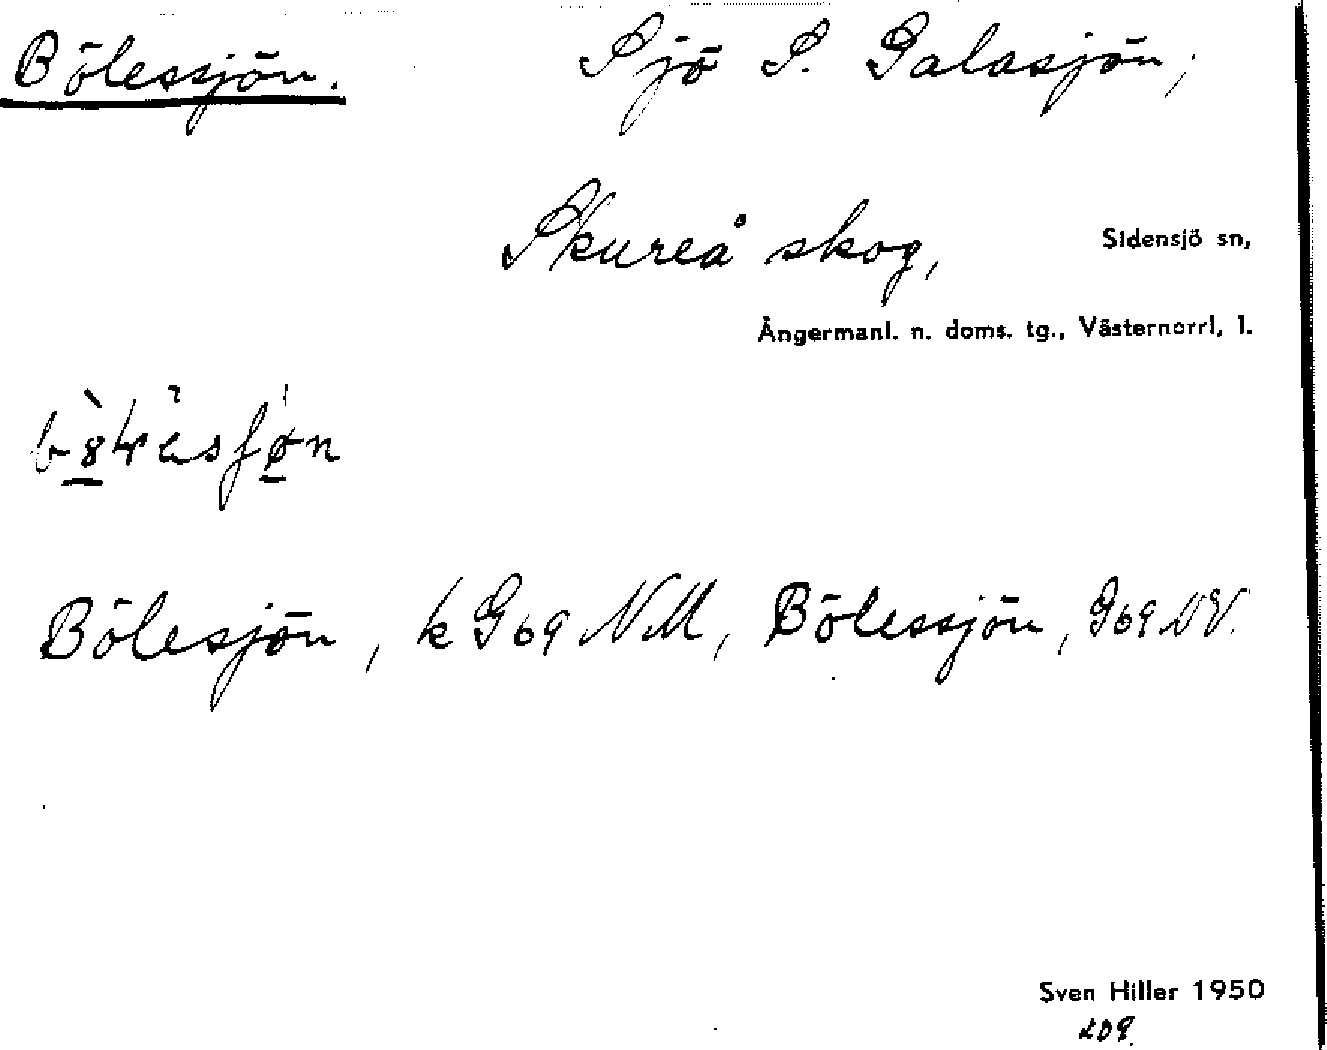 Bölessjön. Sjö S. Galasjön,
Skureå skog, Sidensjö sn,
Ångermanl. n. doms. tg., Västernorrl. l.
Bölesjön, k G69 NM, Bölessjön, G69 NV.
Sven Hiller 1950